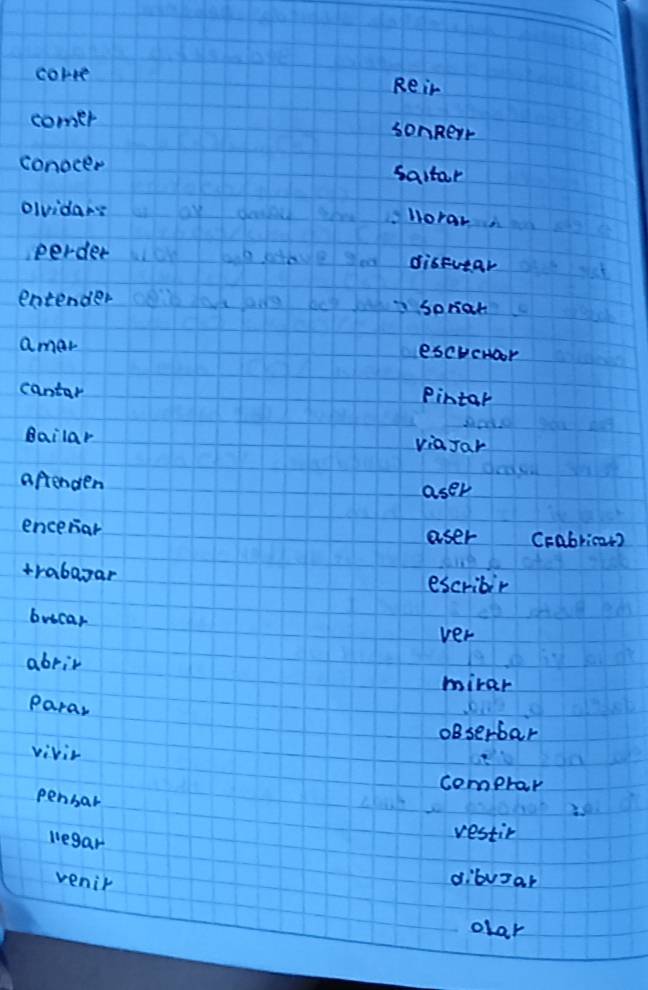 corre
comer
conocer
olvidars
perder
entender
amar
cantar
Bailar
aprenden
enceñar
trabajar
buscar
abrir
Parar
vivir
pensar
llegar
venir
Reir
sonReyr
Saltar
llorar
disfutar
soñar
escuchar
Pintar
viajar
aser
aser (Fabricar)
escribir
ver
mirar
oBserbar
comprar
vestir
dibujar